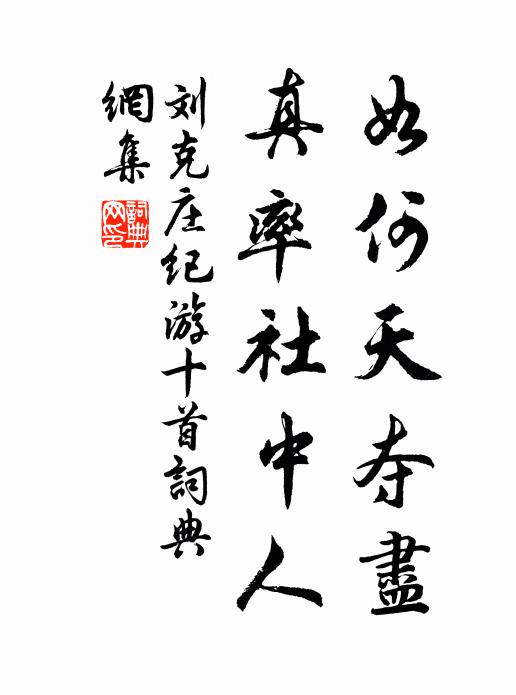 如何天夺盡
真率社中人
刘克庄纪游十首詞典
網集
詞典網印